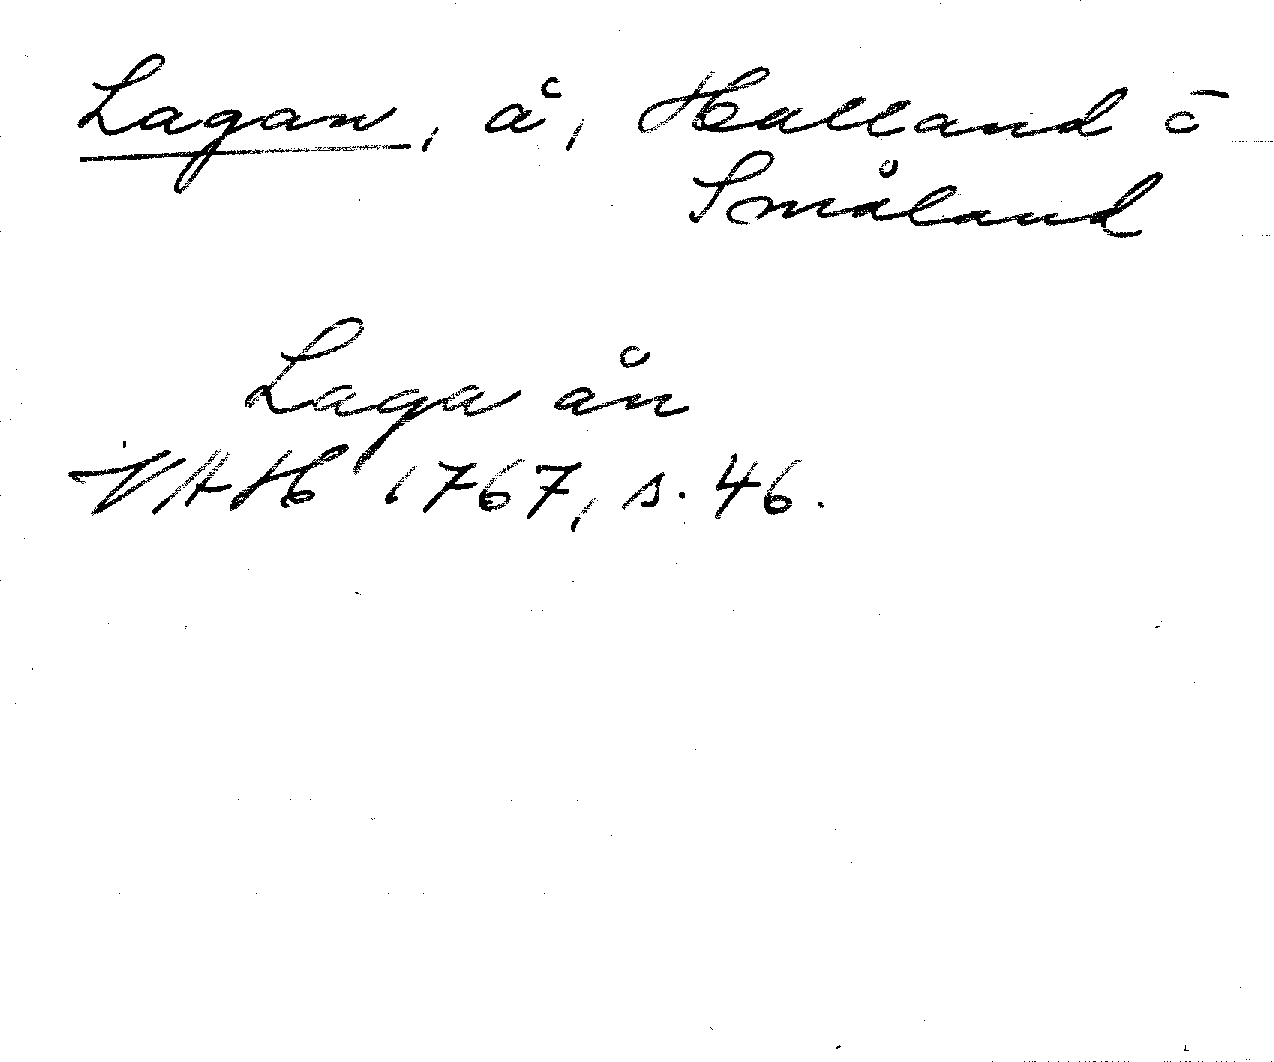 Lagan, å, Halland o
Småland
Laga ån
VAH 1767, s. 46.